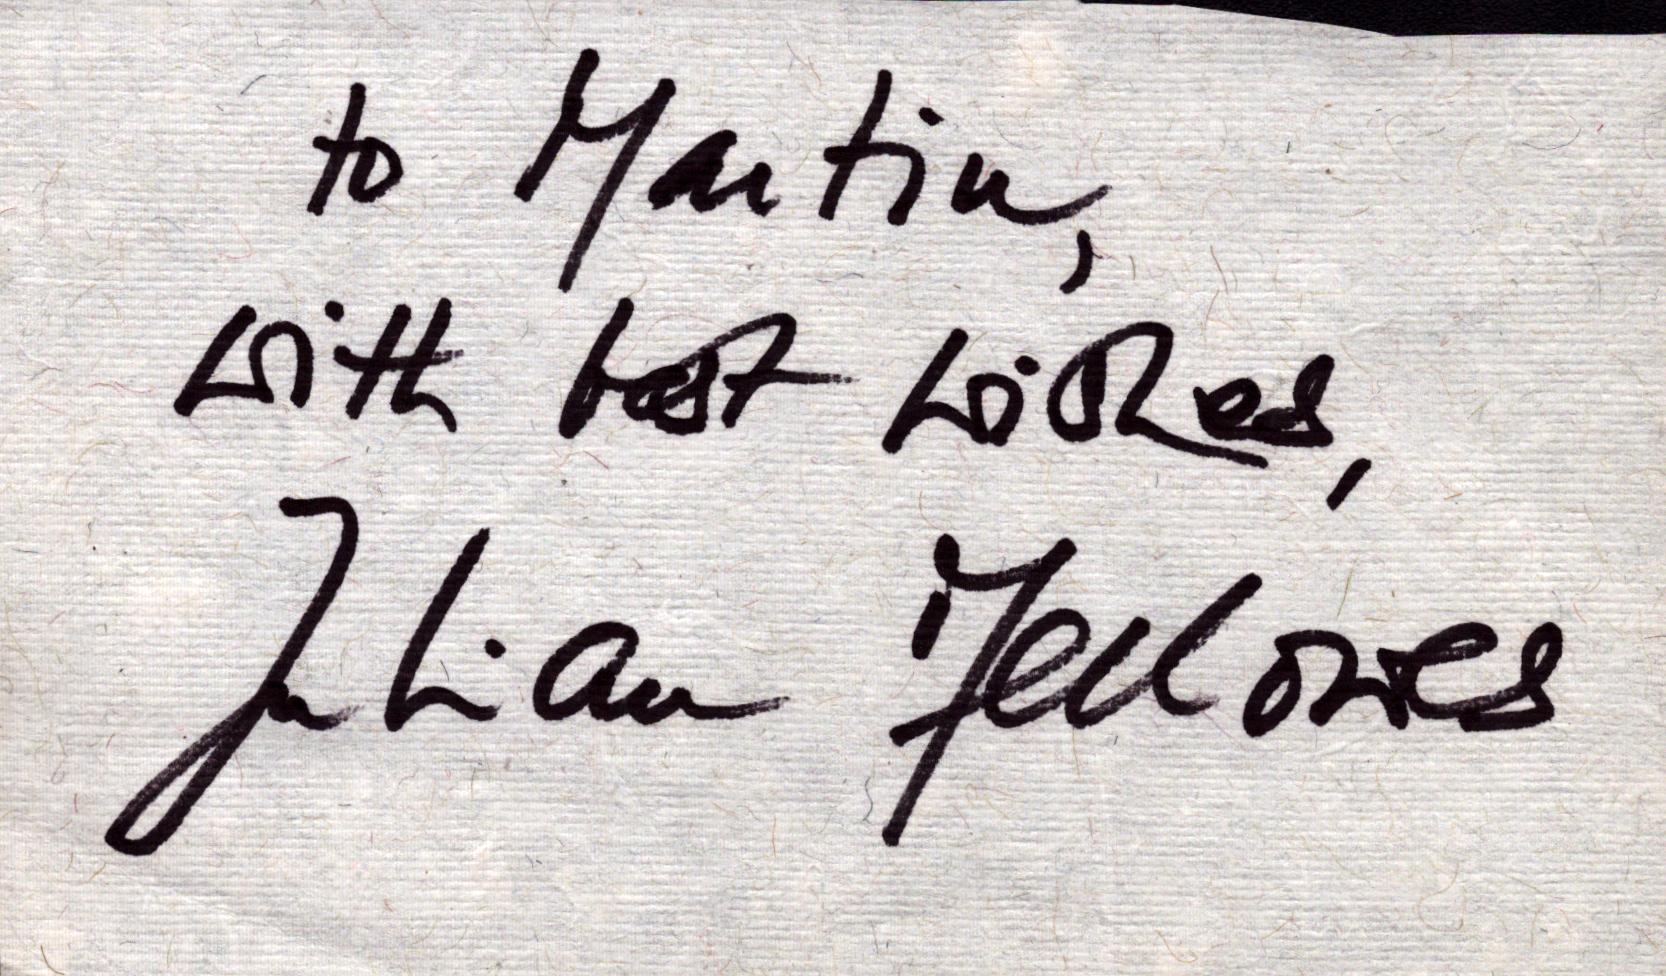 to Martin,
with best wishes,
Julian Fellowes